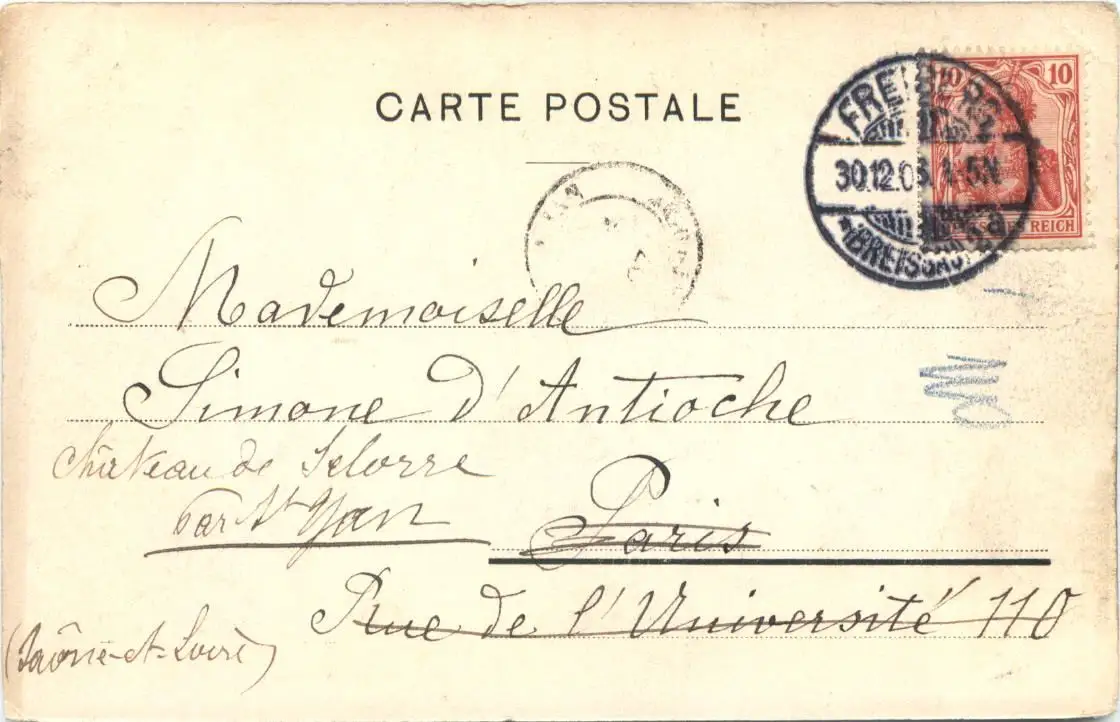 CARTE POSTALE
10
FREIBURG
30.12.03. 1-5N
* (BREISGAU) 2a
REICH
Mademoiselle
Simone d'Antioche
Château de Selorre
par St Yan
Paris
Rue de l'Université 110
(Saône-et-Loire)